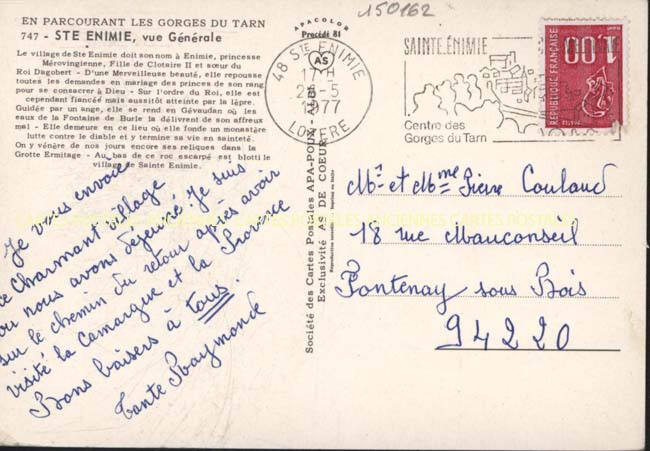 EN PARCOURANT LES GORGES DU TARN
747 - STE ENIMIE, vue Générale
Le village de Ste Enimie doit son nom à Enimie, princesse
Mérovingienne, Fille de Clotaire II et sœur du
Roi Dagobert - D'une Merveilleuse beauté, elle repousse
toutes les demandes en mariage des princes de son rang
pour se consacrer à Dieu - Sur l'ordre du Roi, elle est
cependant fiancée mais aussitôt atteinte par la lèpre.
Guidée par un ange, elle se rend en Gévaudan où les
eaux de la Fontaine de Burle la délivrent de son affreux
mal - Elle demeure en ce lieu où elle fonde un monastère
lutte contre le diable et y termine sa vie en sainteté.
On y vénère de nos jours encore ses reliques dans la
Grotte Ermitage - Au bas de ce roc escarpé est blotti le
village de Sainte Enimie.
Je vous envoie
ce charmant village
où nous avons déjeuné. Je suis
sur le chemin du retour après avoir
visité la Camargue et la Provence
Bons baisers à tous.
Tante Raymonde
APACOLOR
Procédé 81
AS
Société des Cartes Postales APA-POUX - ALBI
Exclusivité AS DE COEUR
Reproduction interdite - Imprimé en Italie
150162
48 STE ENIMIE
17 H
2 -5
1977
LOZERE
SAINTE.ÉNIMIE
Centre des
Gorges du Tarn
1.00
REPUBLIQUE FRANÇAISE
POSTES
Mr et Mme Pierre Coulaud
18 rue Mauconseil
Fontenay sous Bois
94220
CARTES POSTALES ANCIENNES CARTES POSTALES